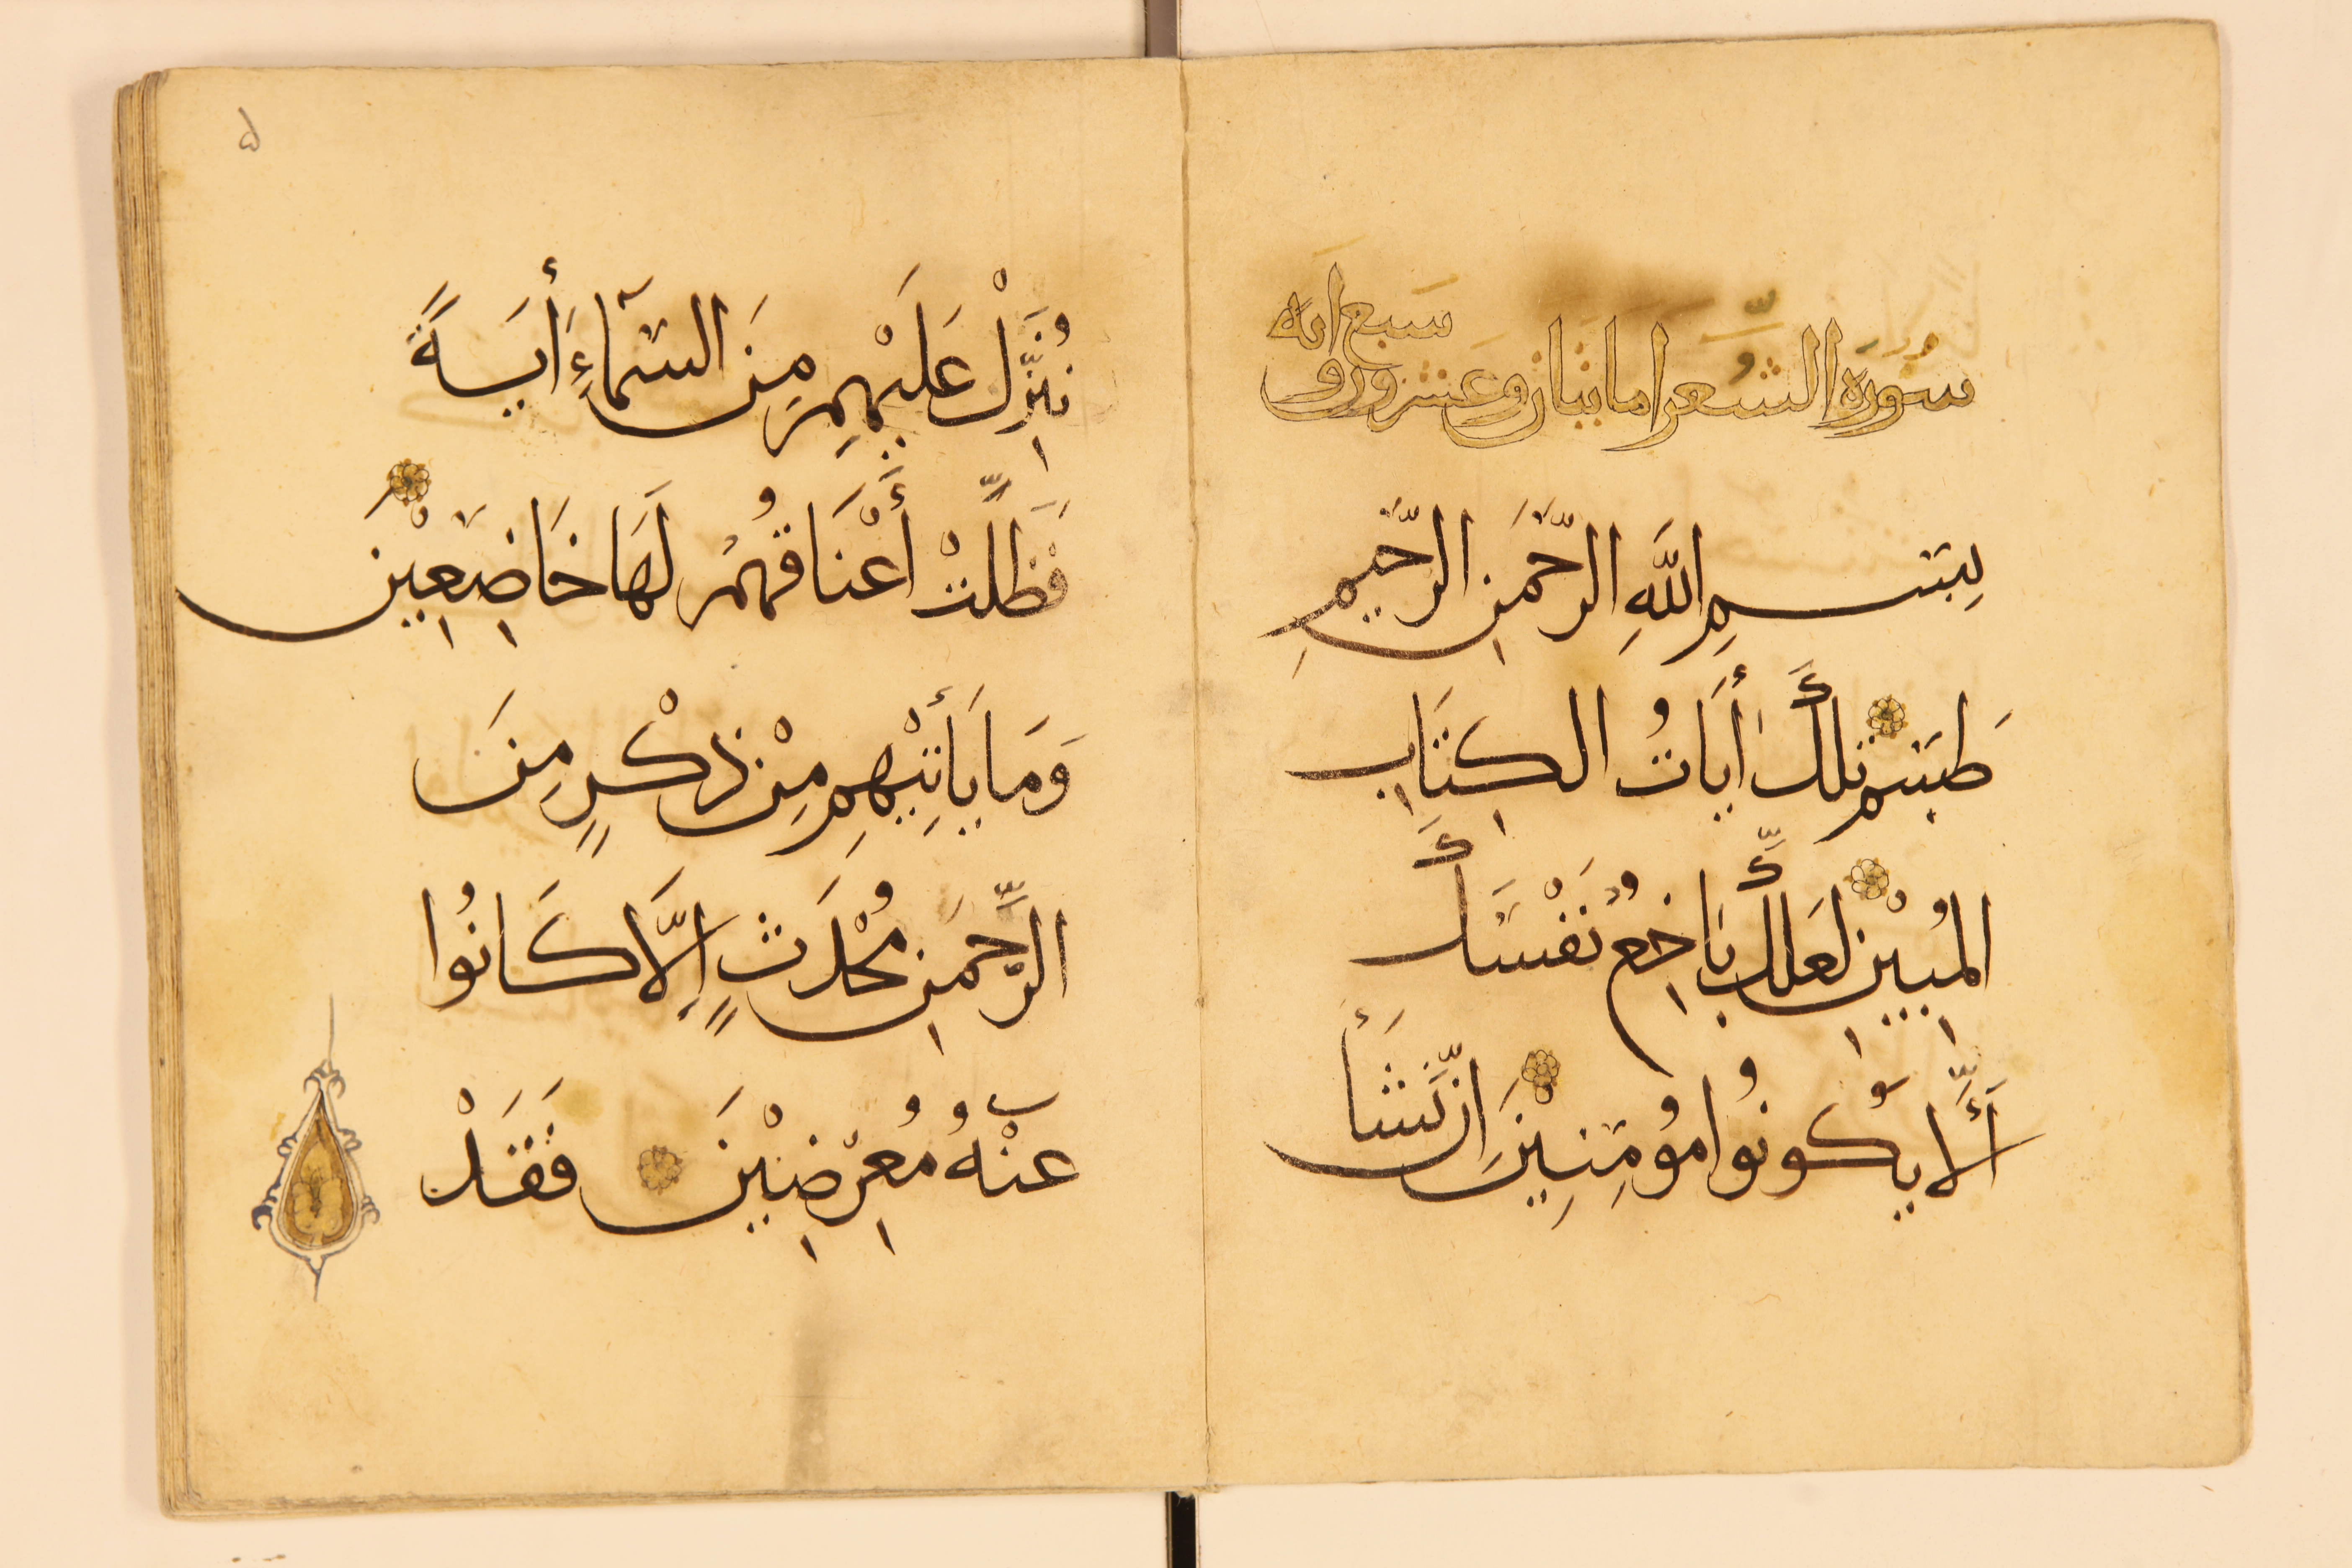 سورة الشعرا مايتان وعشرون و
سبع ايه
بِسْمِ اللَّهِ الرَّحْمَنِ الرَّحِيمِ
طَسم تلكَ أَيَاتُ الكِتَابِ
المُبِيْنِ لَعَلَّكَ بَاخِعٌ نَفْسَكَ
أَلَّا يَكُونُوا مُؤمِنِيْنَ إن نَّشَأ
نُنَزِّلْ عَلَيْهِم مِنَ السَّمَاءِ أَيَةً
فَظَلَّتْ أَعْنَاقُهُم لَهَا خَاضِعِيْنَ
وَمَا يَأتِيْهِم مِنْ ذِكْرٍ مِنَ
الرَّحْمَنِ مُحْدَثٍ إِلَّا كَانُوا
عَنْهُ مُعْرِضِيْنَ فَقَدْ
۵